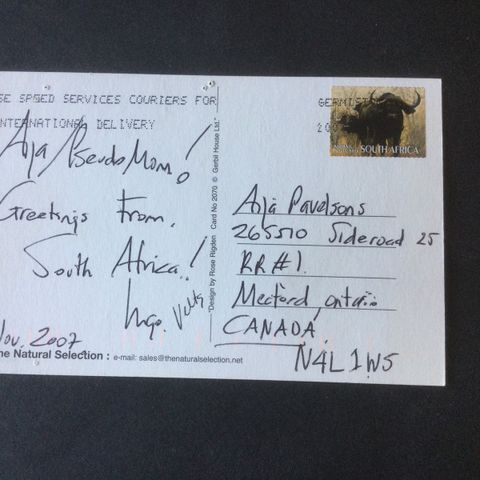 SE SPEED SERVICES COURIERS FOR
INTERNATIONAL DELIVERY
Aija PseudoMom!
Greetings from
South Africa!
Ingo. Velts
Nov. 2007
The Natural Selection : e-mail: sales@thenaturalselection.net
"Design by Rose Rigden Card No 2070 © Gerbil House Ltd."
GERMIST
SOUTH AFRICA
Aija Pavelsons
265510 Sideroad 25
RR#1.
Meaford, Ontario
CANADA
N4L 1W5